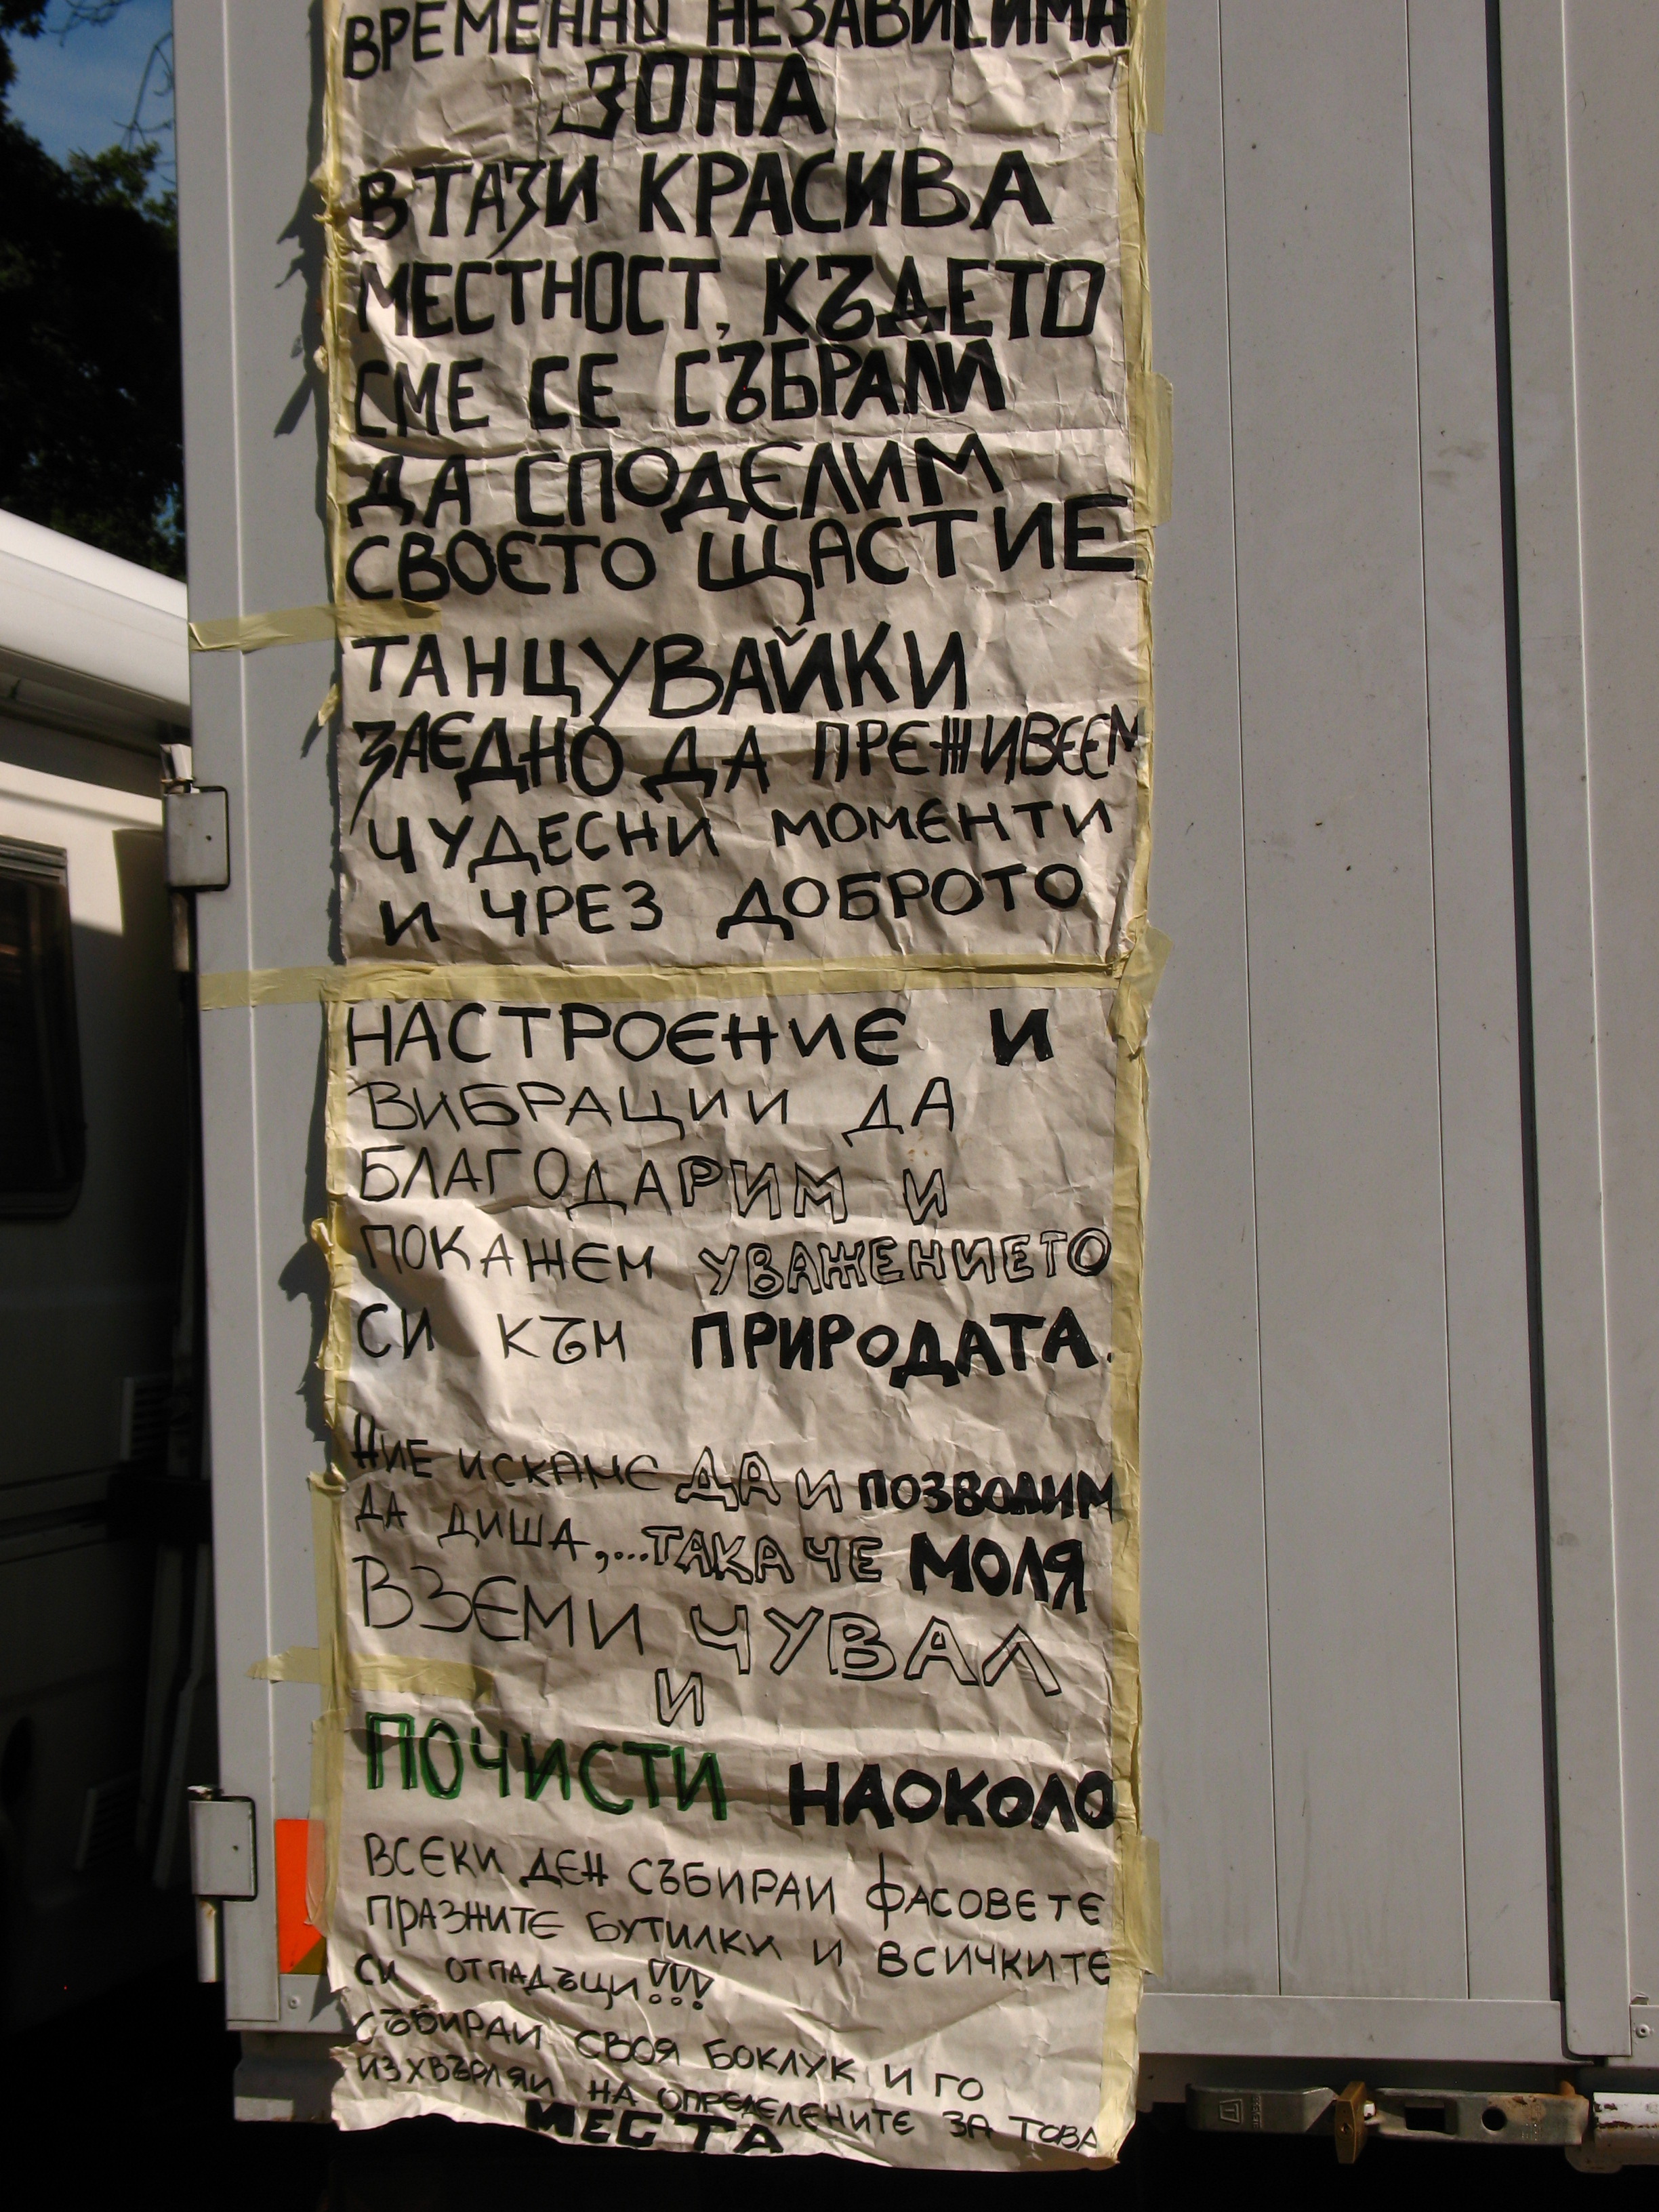 ВРЕМЕННО НЕЗАВИСИМА
ЗОНА
В ТАЗИ КРАСИВА
МЕСТНОСТ, КЪДЕТО
СМЕ СЕ СЪБРАЛИ
ДА СПОДЕЛИМ
СВОЕТО ЩАСТИЕ
ТАНЦУВАЙКИ
ЗАЕДНО ДА ПРЕЖИВЕЕМ
ЧУДЕСНИ МОМЕНТИ
И ЧРЕЗ ДОБРОТО
НАСТРОЕНИЕ И
ВИБРАЦИИ ДА
БЛАГОДАРИМ И
ПОКАЖЕМ УВАЖЕНИЕТО
СИ КЪМ ПРИРОДАТА.
НИЕ ИСКАМЕ ДА И ПОЗВОЛИМ
ДА ДИША,...ТАКА ЧЕ МОЛЯ
ВЗЕМИ ЧУВАЛ
И
ПОЧИСТИ НАОКОЛО
ВСЕКИ ДЕН СЪБИРАИ ФАСОВЕТЕ
ПРАЗНИТЕ БУТИЛКИ И ВСИЧКИТЕ
СИ ОТПАДЪЩИ!!!
СЪБИРАИ СВОЯ БОКЛУК И ГО
ИЗХВЪРЛЯИ НА ОПРЕДЕЛЕНИТЕ ЗА ТОВА
МЕСТА